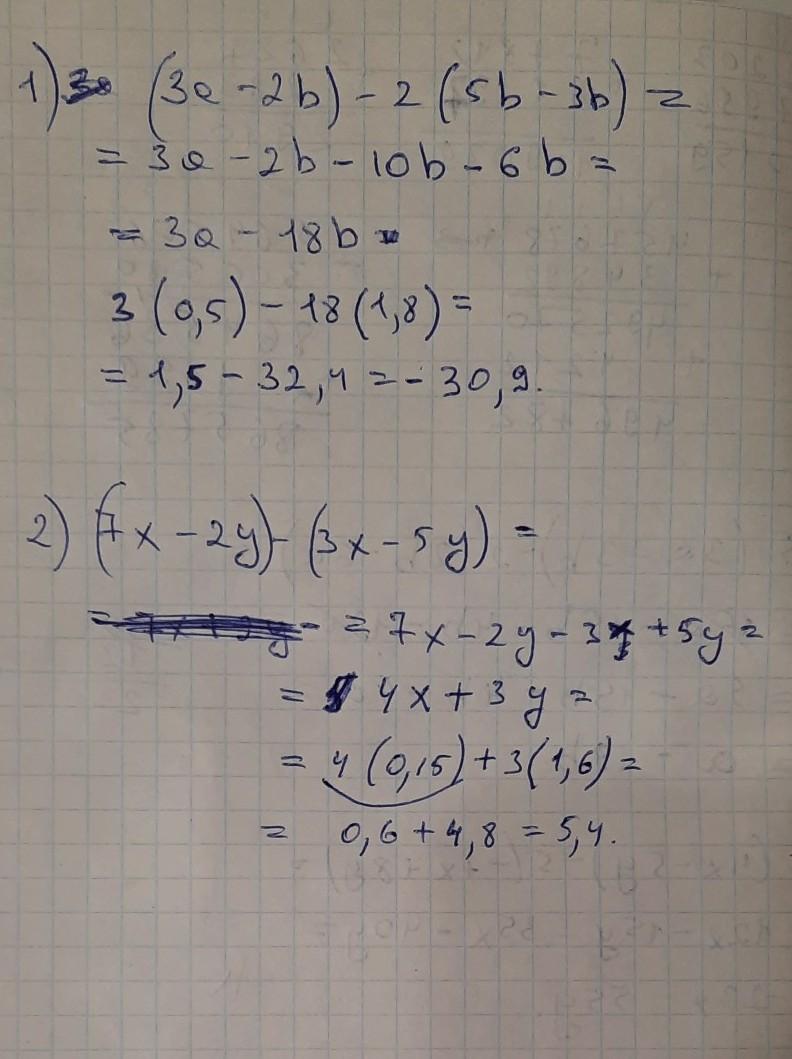 1) (3a - 2b) - 2 (5b - 3b) =
= 3a - 2b - 10b - 6b =
= 3a - 18b
3 (0,5) - 18 (1,8) =
= 1,5 - 32,4 = - 30,9.
2) (7x - 2y) - (3x - 5y) =
= = 7x - 2y - 3x + 5y =
= 4x + 3y =
= 4 (0,15) + 3 (1,6) =
= 0,6 + 4,8 = 5,4.